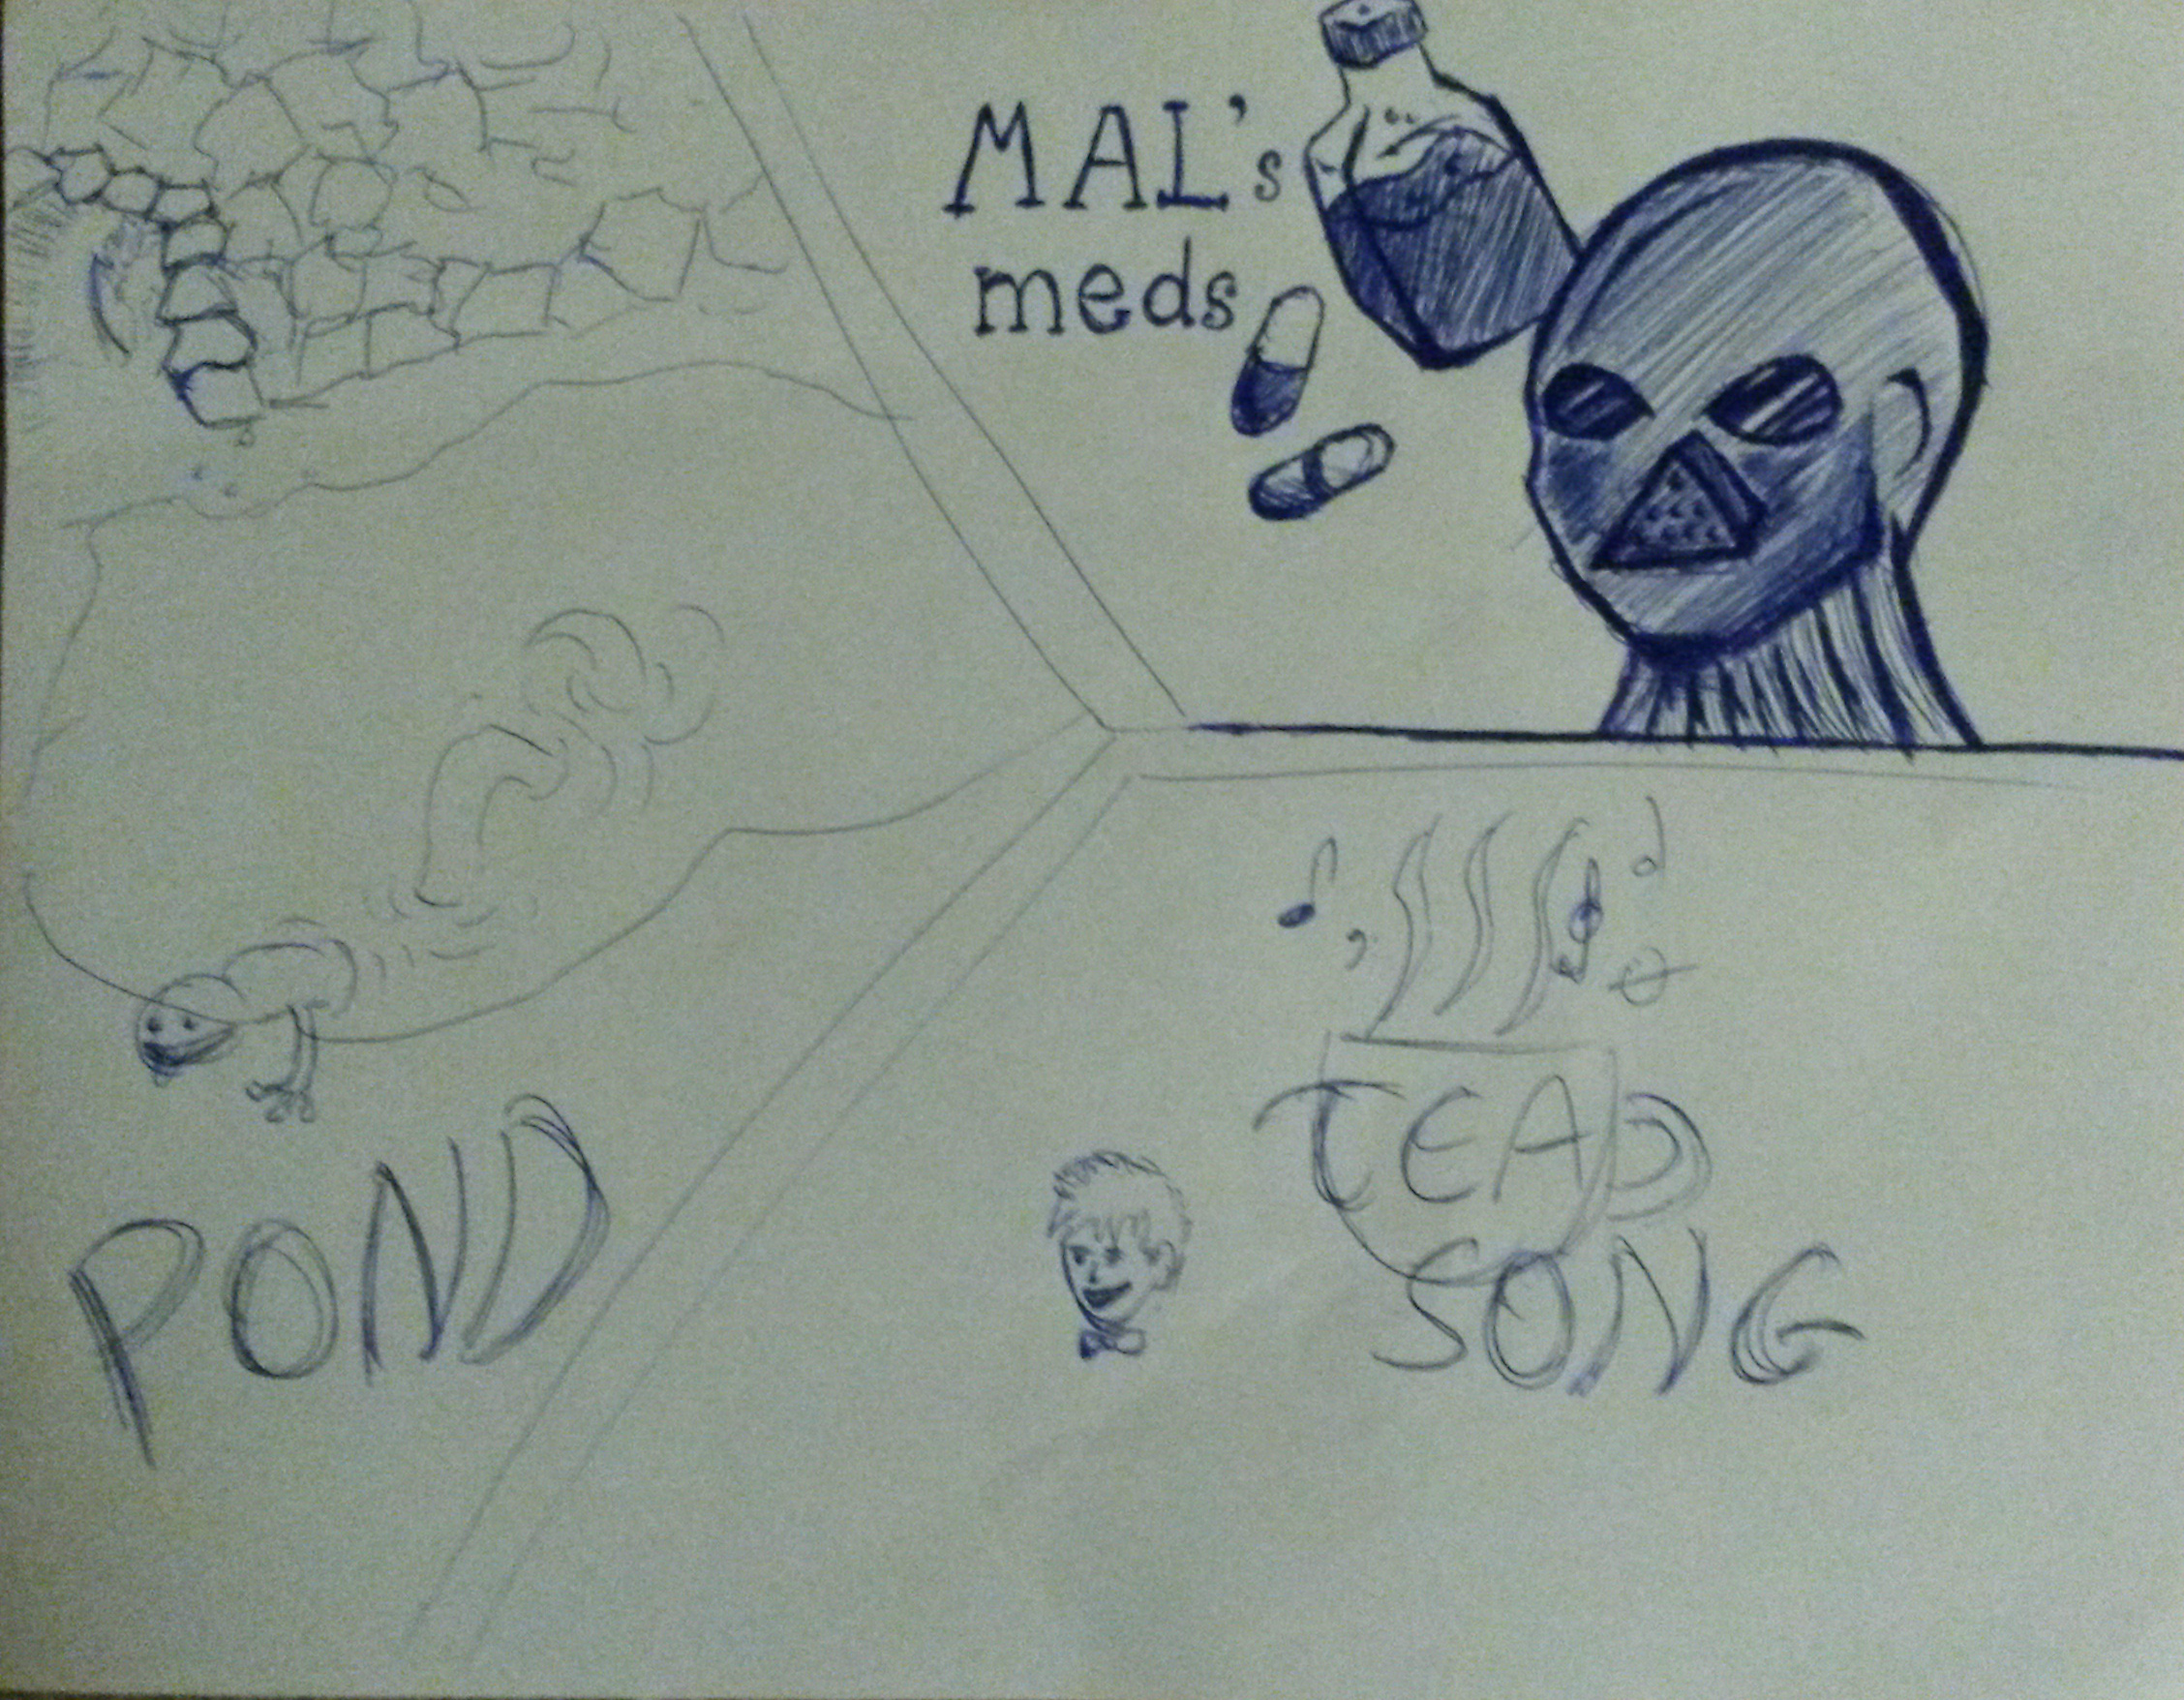 MAL's
meds
POND
TEA
SONG